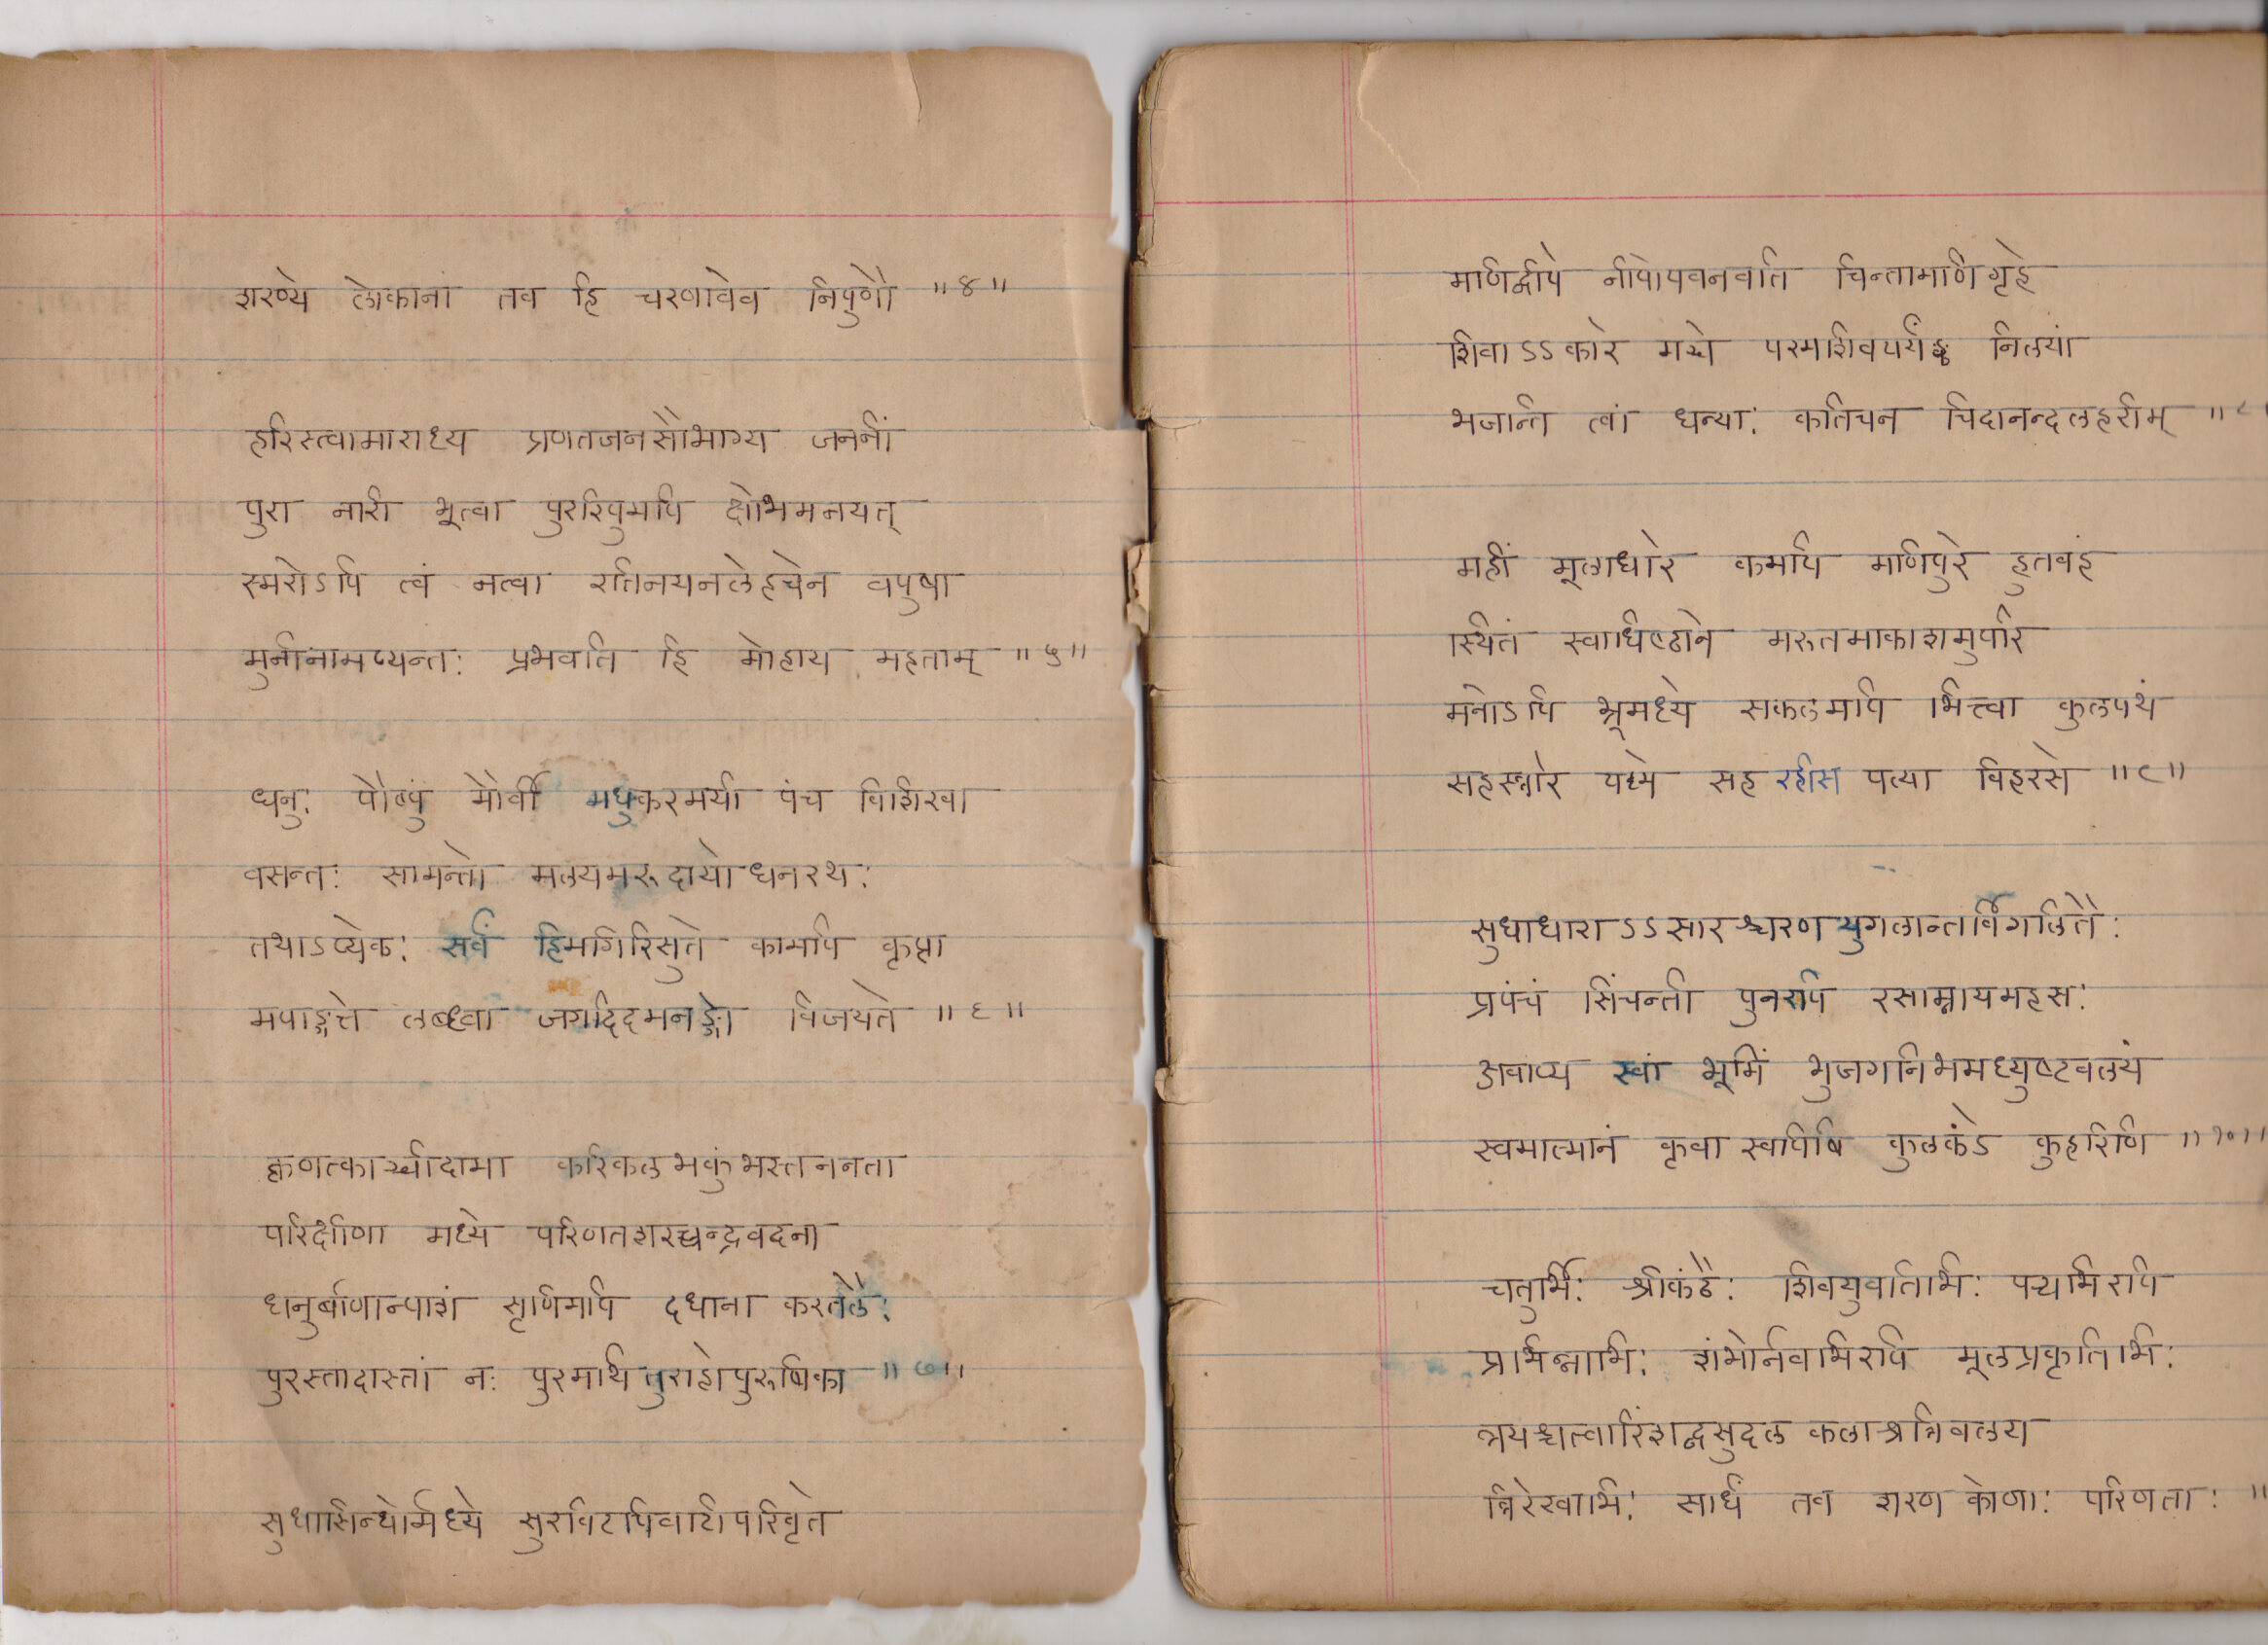 शरण्ये लोकानां तव हि चरणावेव निपुणौ ॥४॥
हरिस्त्वामाराध्य प्रणतजनसौभाग्य जननीं
पुरा नारी भूत्वा पुररिपुमपि क्षोभमनयत्
स्मरोऽपि त्वं नत्वा रतिनयनलेह्येन वपुषा
मुनीनामप्यन्तः प्रभवति हि मोहाय महताम् ॥५॥
धनुः पौष्पुं मौर्वी मधुकरमयी पंच विशिखा
वसन्तः सामन्तो मलयमरुदायोधनरथः
तथाऽप्येकः सर्वं हिमगिरिसुते कामपि कृपा
मपाङ्गत्ते लब्ध्वा जगदिदमनङ्गो विजयते ॥६॥
क्वणत्काञ्चीदामा करिकलभकुंभस्तननता
परिक्षीणा मध्ये परिणतशरच्चन्द्रवदना
धनुर्बाणान्पाशं सृणिमपि दधाना करतलैः
पुरस्तादास्तां नः पुरमथितुराहोपुरुषिका ॥७॥
सुधासिन्धोर्मध्ये सुरविटपिवाटीपरिवृते
मणिद्वीपे नीपोपवनवति चिन्तामणि गृहे
शिवाऽऽकारे मञ्चे परमशिवपर्यङ्क निलयां
भजन्ति त्वां धन्याः कतिचन चिदानन्दलहरीम् ॥८॥
महीं मूलाधारे कमपि मणिपुरे हुतवहं
स्थितं स्वाधिष्ठाने मरुतमाकाशमुपरि
मनोऽपि भ्रूमध्ये सकलमपि भित्त्वा कुलपथं
सहस्त्रारे पद्मे सह रहसि पत्या विहरसे ॥९॥
सुधाधाराऽऽसारश्चरणयुगलान्तर्विगलितैः
प्रपंचं सिंचन्ती पुनरपि रसाम्नायमहसः
अवाप्य स्वां भूमिं भुजगनिभमध्युष्टवलयं
स्वमात्मानं कृवा स्वपिषि कुलकंडे कुहरिणि ॥१०॥
चतुर्भिः श्रीकंठैः शिवयुवतिभिः पञ्चभिरपि
प्रभिन्नाभिः शंभोर्नवभिरपि मूलप्रकृतिभिः
त्रयश्चत्वारिंशद्वसुदल कलाश्रत्रिवलय
त्रिरेखाभिः सार्धं तव शरण कोणाः परिणताः ॥